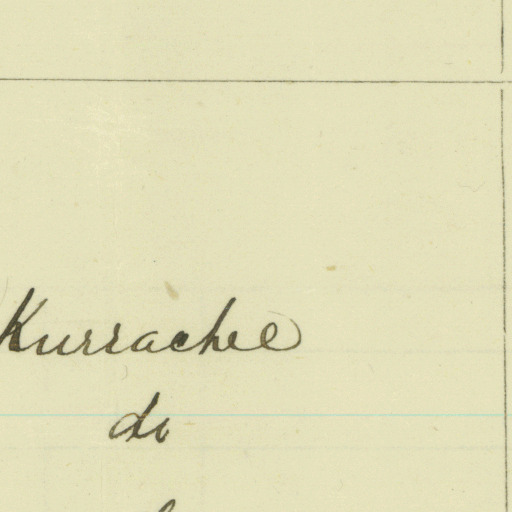 Kurrachee
do